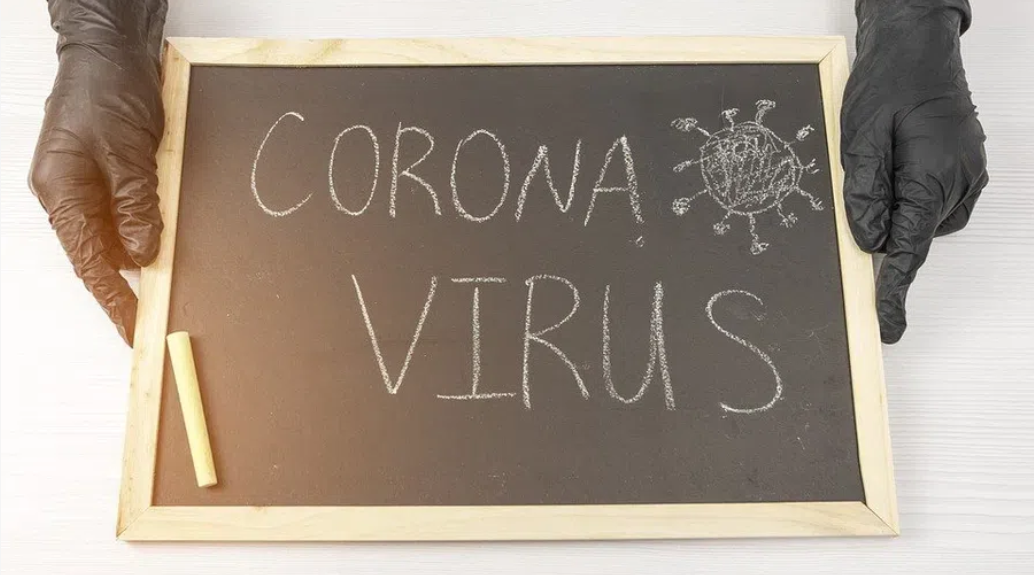 CORONA
VIRUS